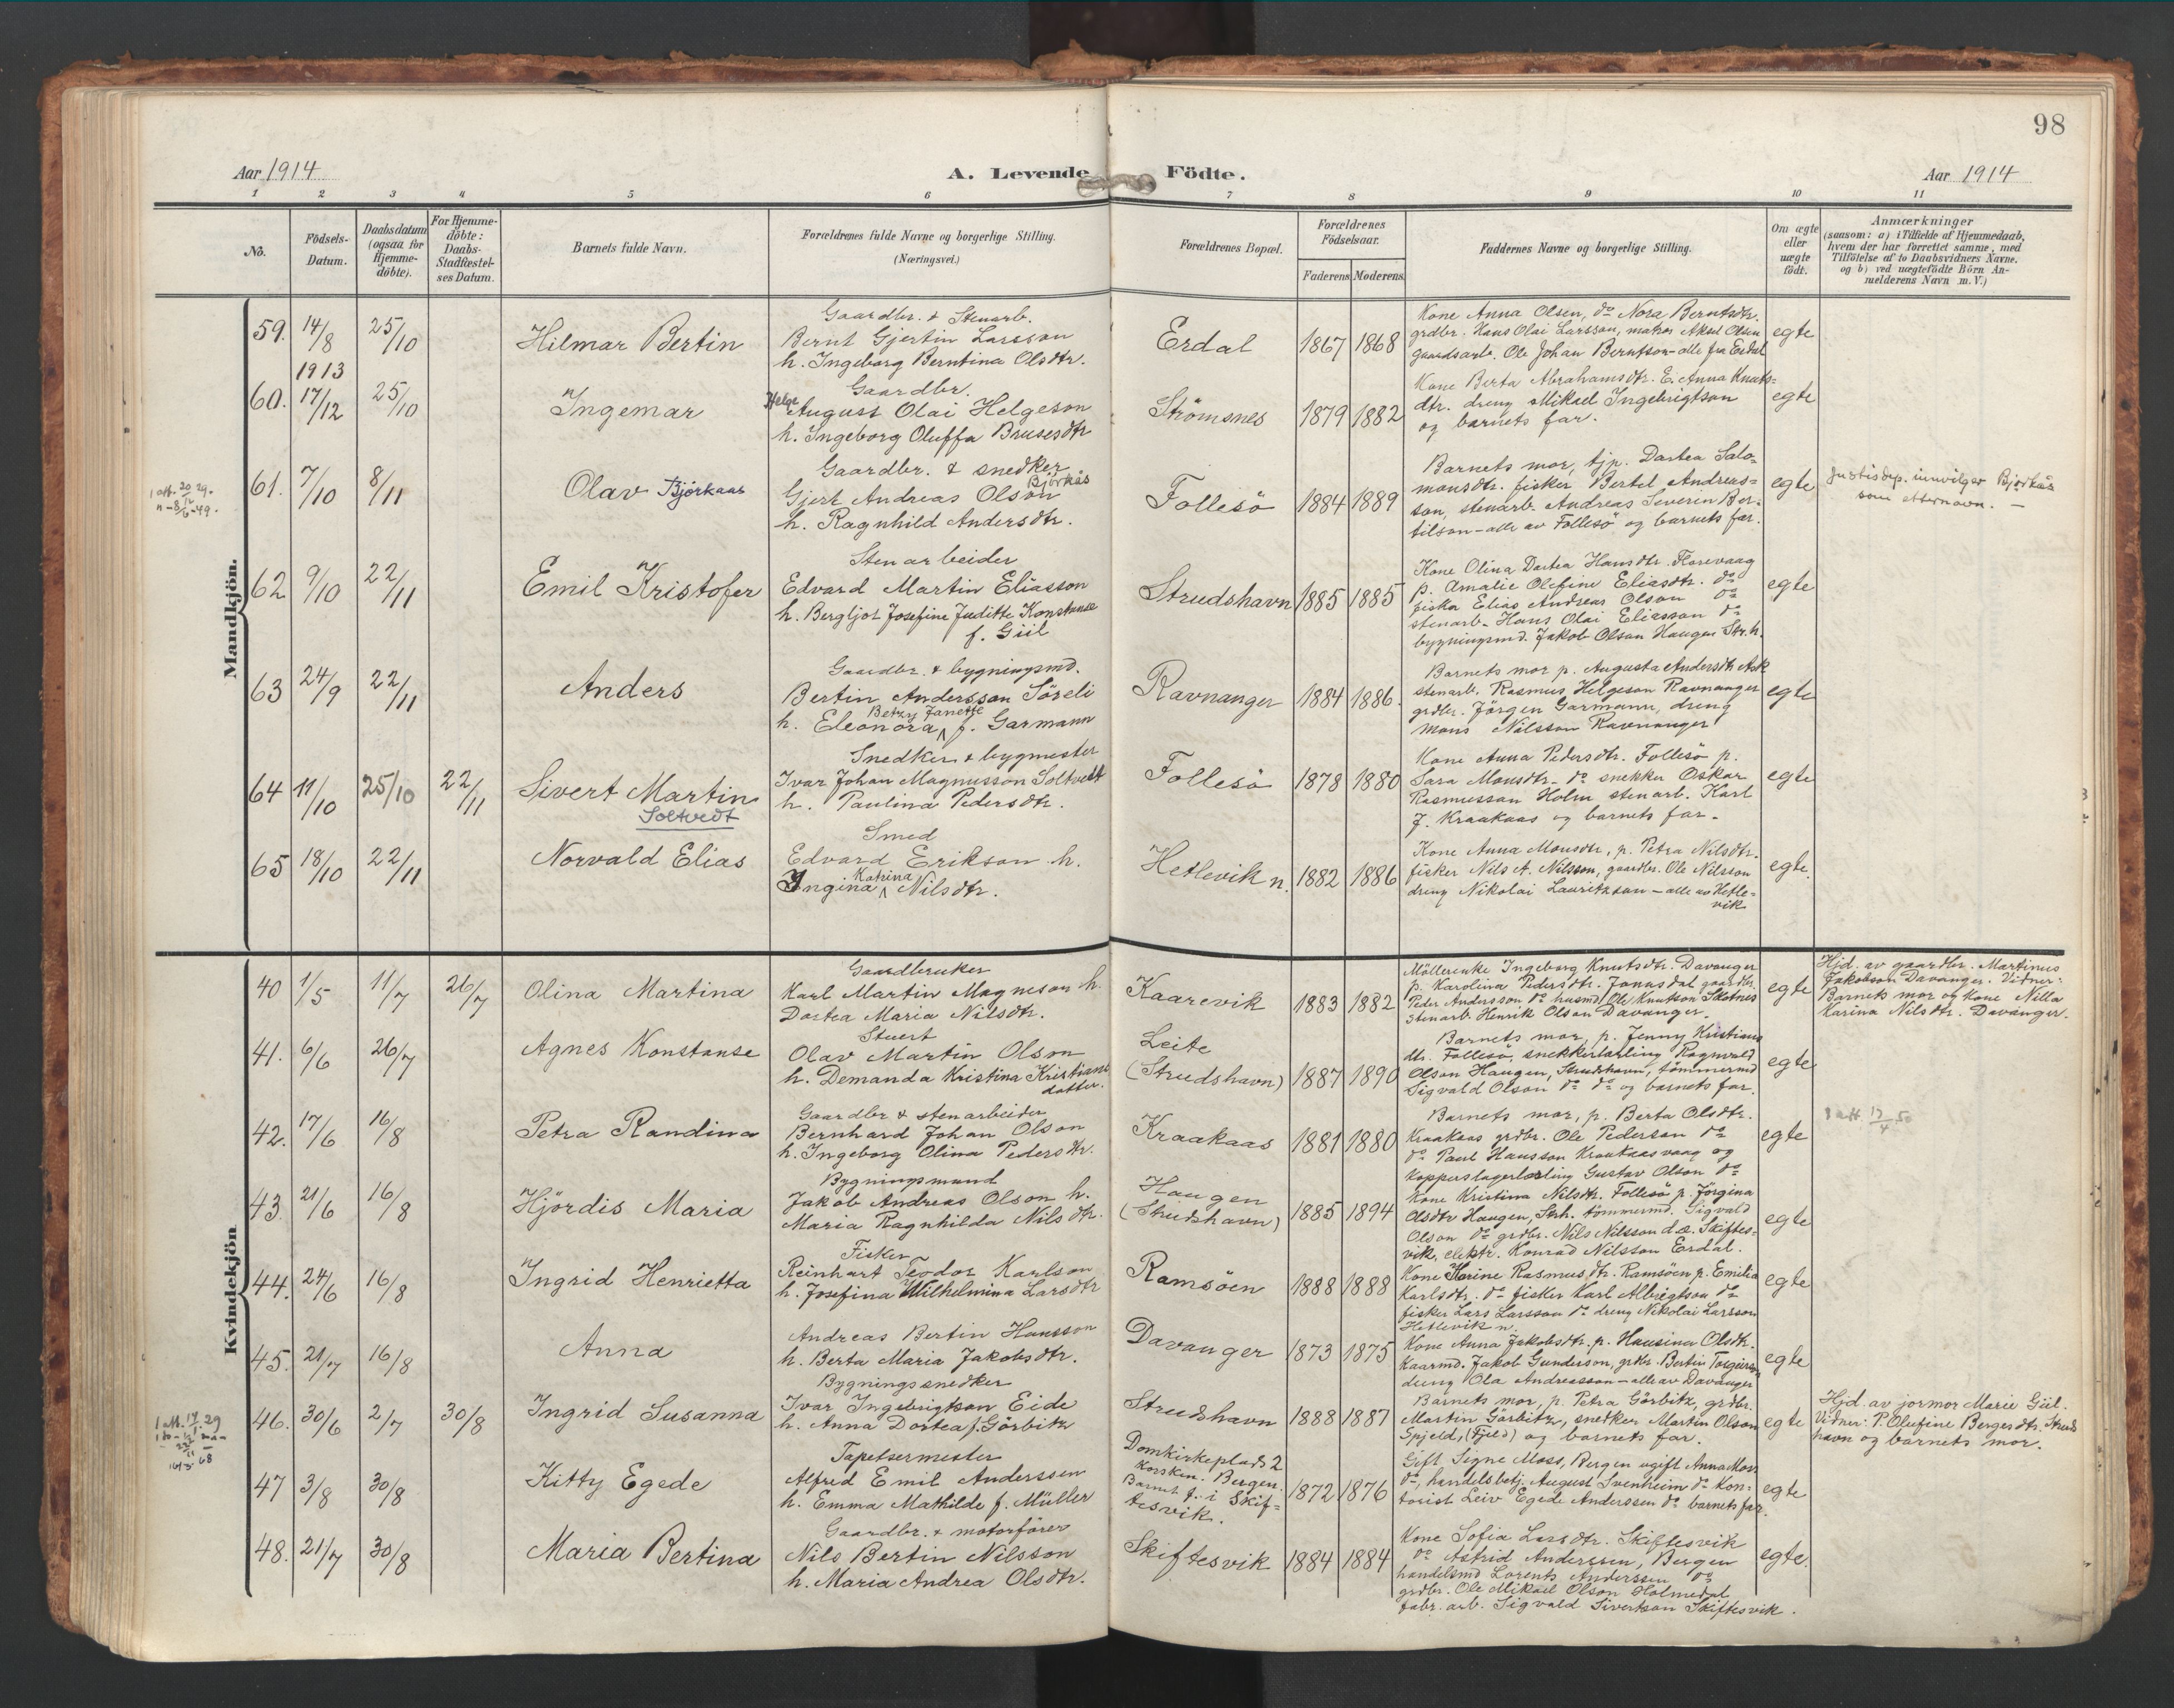 98
Aar 1914
A. Levende Födte.
Aar 1914
1 2 3 4 5 6 7 8 9 10 11
No.
Födsels-Datum.
Daabsdatum (ogsaa for Hjemme-döbte).
For Hjemme-döbte: Daabs-Stadfæstel-ses Datum.
Barnets fulde Navn.
Forældrenes fulde Navne og borgerlige Stilling.
(Næringsvei.)
Forældrenes Bopæl.
Forældrenes Födselsaar.
Faderens. Moderens.
Faddernes Navne og borgerlige Stilling.
Om ægte eller uægte födt.
Anmærkninger
(saasom: a) i Tilfælde af Hjemmedaab,
hvem der har forrettet samme, med
Tilföielse af to Daabsvidners Navne.
og b) ved uægtefödte Börn An-
melderens Navn m. V.)
Mandkjön.
59. 14/8 25/10 Hilmar Bertin
Gaardbr. & Stenarb.
Bernt Gjertin Larsson
h. Ingeborg Berntina Olsdtr.
Erdal 1867 1868
Kone Anna Olsen, do Nora Berntsdtr.
grdbr. Hans Olai Larsson, matros Aksel Olsen
gaardsarb. Ole Johan Berntson - alle fra Erdal
egte
1913
60. 17/12 25/10 Ingemar
Gaardbr.
Helge
August Olai Helgeson
h. Ingeborg Oluffa Brusesdtr
Strömsnes 1879 1882
Kone Berta Abrahamsdtr. E. Anna Knuts=
dtr. dreng Mikael Ingebrigtson
og barnets far.
egte
61. 7/10 8/11 Olav Björkaas
Gaardbr. & snedker
Björkås
Gjert Andreas Olson
h. Ragnhild Andersdtr.
Follesö 1884 1889
Barnets mor, tjp. Dartea Salo=
monsdtr. fisker Bertel Andreas=
son, stenarb. Andreas Severin Ber-
tilson - alle av Follesö og barnets far.
egte
Justisdep. innvilger Bjørkås
som etternavn. -
62 9/10 22/11 Emil Kristofer
Stenarbeider
Edvard Martin Eliasson
h. Bergljot Josefine Juditte Konstanse
f. Giil
Strudshavn 1885 1885
Kone Olina Dartea Hansdtr. Florevaag
p. Amalie Olefine Eliasdtr. do
fisker Elias Andreas Olson do
stenarb. Hans Olai Eliasson do
bygningsmd. Jakob Olson Haugen Str.h.
egte
63 24/9 22/11 Anders
Gaardbr. & bygningsmd.
Bertin Andersson Söreli
Betzy Janette
h. Eleonora f. Garmann
Ravnanger 1884 1886.
Barnets mor p. Augusta Andersdtr Ask
stenarb. Rasmus Helgeson Ravnanger
grdbr. Jörgen Garmann, dreng
Mons Nilsson Ravnanger
egte
64 11/10 25/10 22/11 Sivert Martin
Soltvedt
Snedker & bygmester
Ivar Johan Magnusson Soltvedt
h. Paulina Pedersdtr.
Follesö 1878 1880
Kone Anna Pedersdtr. Follesö p.
Sara Monsdtr. do snekker Oskar
Rasmussan Holm stenarb. Karl
J. Kraakaas og barnets far.
egte
65 18/10 22/11 Norvald Elias
Smed
Edvard Erikson h.
Katrina
Ingina Nilsdtr.
Hetlevik n. 1882 1886
Kone Anna Monsdtr, p. Petra Nilsdtr.
fisker Nils A. Nilsson, gaardbr. Ole Nilsson
dreng Nikolai Lauritzson - alle av Hetle=
vik
egte.
Kvindekjön
40 1/5 11/7 26/7 Olina Martina
Gaardbruker
Karl Martin Magneson h.
Dortea Maria Nilsdtr.
Kaarevik 1883 1882
Möllerenke Ingeborg Knutsdtr. Davanger
p. Karolina Pedersdtr. Jonasdal gaardbr.
Peder Andersson do husmd. Ole Knutson Skotnes
stenarb. Henrik Olson Davanger.
egte
Hjd. av gaardbr. Martinus
Jakobson Davanger. Vidner:
Barnets mor og kone Nilla
Karina Nilsdtr. Davanger.
41. 6/6 26/7 Agnes Konstanse
Stuert
Olav Martin Olson
h. Demanda Kristina Kristians
datter.
Leite
(Strudshavn) 1887 1890
Barnets mor, p. Jenny Kristians
dtr. Follesö, snekkerlærling Ragnvald
Olson Haugen, Strudshavn, tömmermd
Sigvald Olson do do og barnets far.
egte
42. 17/6 16/8 Petra Randina
Gaardbr & stenarbeider
Bernhard Johan Olson
h. Ingeborg Olina Pedersdtr.
Kraakaas 1881 1880
Barnets mor, p. Berta Olsdtr.
Kraakaas grdbr. Ole Pederson do
do Paul Hansson Kraakaasvaag og
kopperslagerlærling Gustav Olson do
egte
43. 21/6 16/8 Hjördis Maria
Bygningsmand
Jakob Andreas Olson h.
Maria Ragnhilda Nilsdtr.
Haugen
(Strudshavn) 1885 1894
Kone Kristina Nilsdtr. Follesö p. Jörgina
Olsdtr Haugen, Strh. tömmermd. Sigvald
Olson do grdbr. Nils Nilsson d.æ. Skiftes=
vik, elektr. Konrad Nilsson Erdal.
egte
44. 24/6 16/8 Ingrid Henrietta
Fisker
Reinhart Teodor Karlson
h. Josefina Wilhelmina Larsdtr
Ramsöen 1888 1888
Kone Karine Rasmusdtr. Ramsöen p. Emilia
Karlsdtr. do fisker Karl Albrigtson do
fisker Lars Larsson do dreng Nikolai Larsson
Hetlevik n.
egte
45. 21/7 16/8 Anna
Andreas Bertin Hansson
h. Berta Maria Jakobsdtr.
Davanger 1873 1875
Kone Anna Jakobsdtr. p. Hansina Olsdtr.
kaarmd. Jakob Gunderson, grbr. Bertin Torgerson
dreng Ola Andreasson - alle av Davanger
egte
46. 30/6 2/7 30/8 Ingrid Susanna
Bygningssnedker
Ivar Ingebrigtson Eide
h. Anna Dortea f. Görbitz
Strudshavn 1888 1887
Barnets mor, p. Petra Görbitz, grdbr.
Martin Görbitz, snedker Martin Olson
Spjeld, (Fjeld) og barnets far.
egte
Hjd. av jormor Marie Giil.
Vidner: P. Olufine Bergesdtr. Struds
havn og barnets mor.
47 3/8 30/8 Kitty Egede
Tapetsermester
Alfred Emil Anderssen
h. Emma Mathilde f. Müller
Domkirkeplads 2
Korskin. Bergen.
Barnet f. i Skif=
tesvik.
1872 1876
Gift Signe Moss, Bergen ugift Anna Moss
do, handelsbetj. August Svenheim do Kon=
torist Leiv Egede Anderssen do barnets far.
egte
48. 21/7 30/8 Maria Bertina
Gaardbr. & motorförer
Nils Bertin Nilsson
h. Maria Andrea Olsdtr.
Skiftesvik 1884 1884
Kone Sofia Larsdtr. Skiftesvik
do Astrid Anderssen, Bergen
handelsmd Lorents Anderssen do
grdbr. Ole Mikael Olson Holmedal
fabr. arb. Sigvald Sivertson Skiftesvik.
egte.